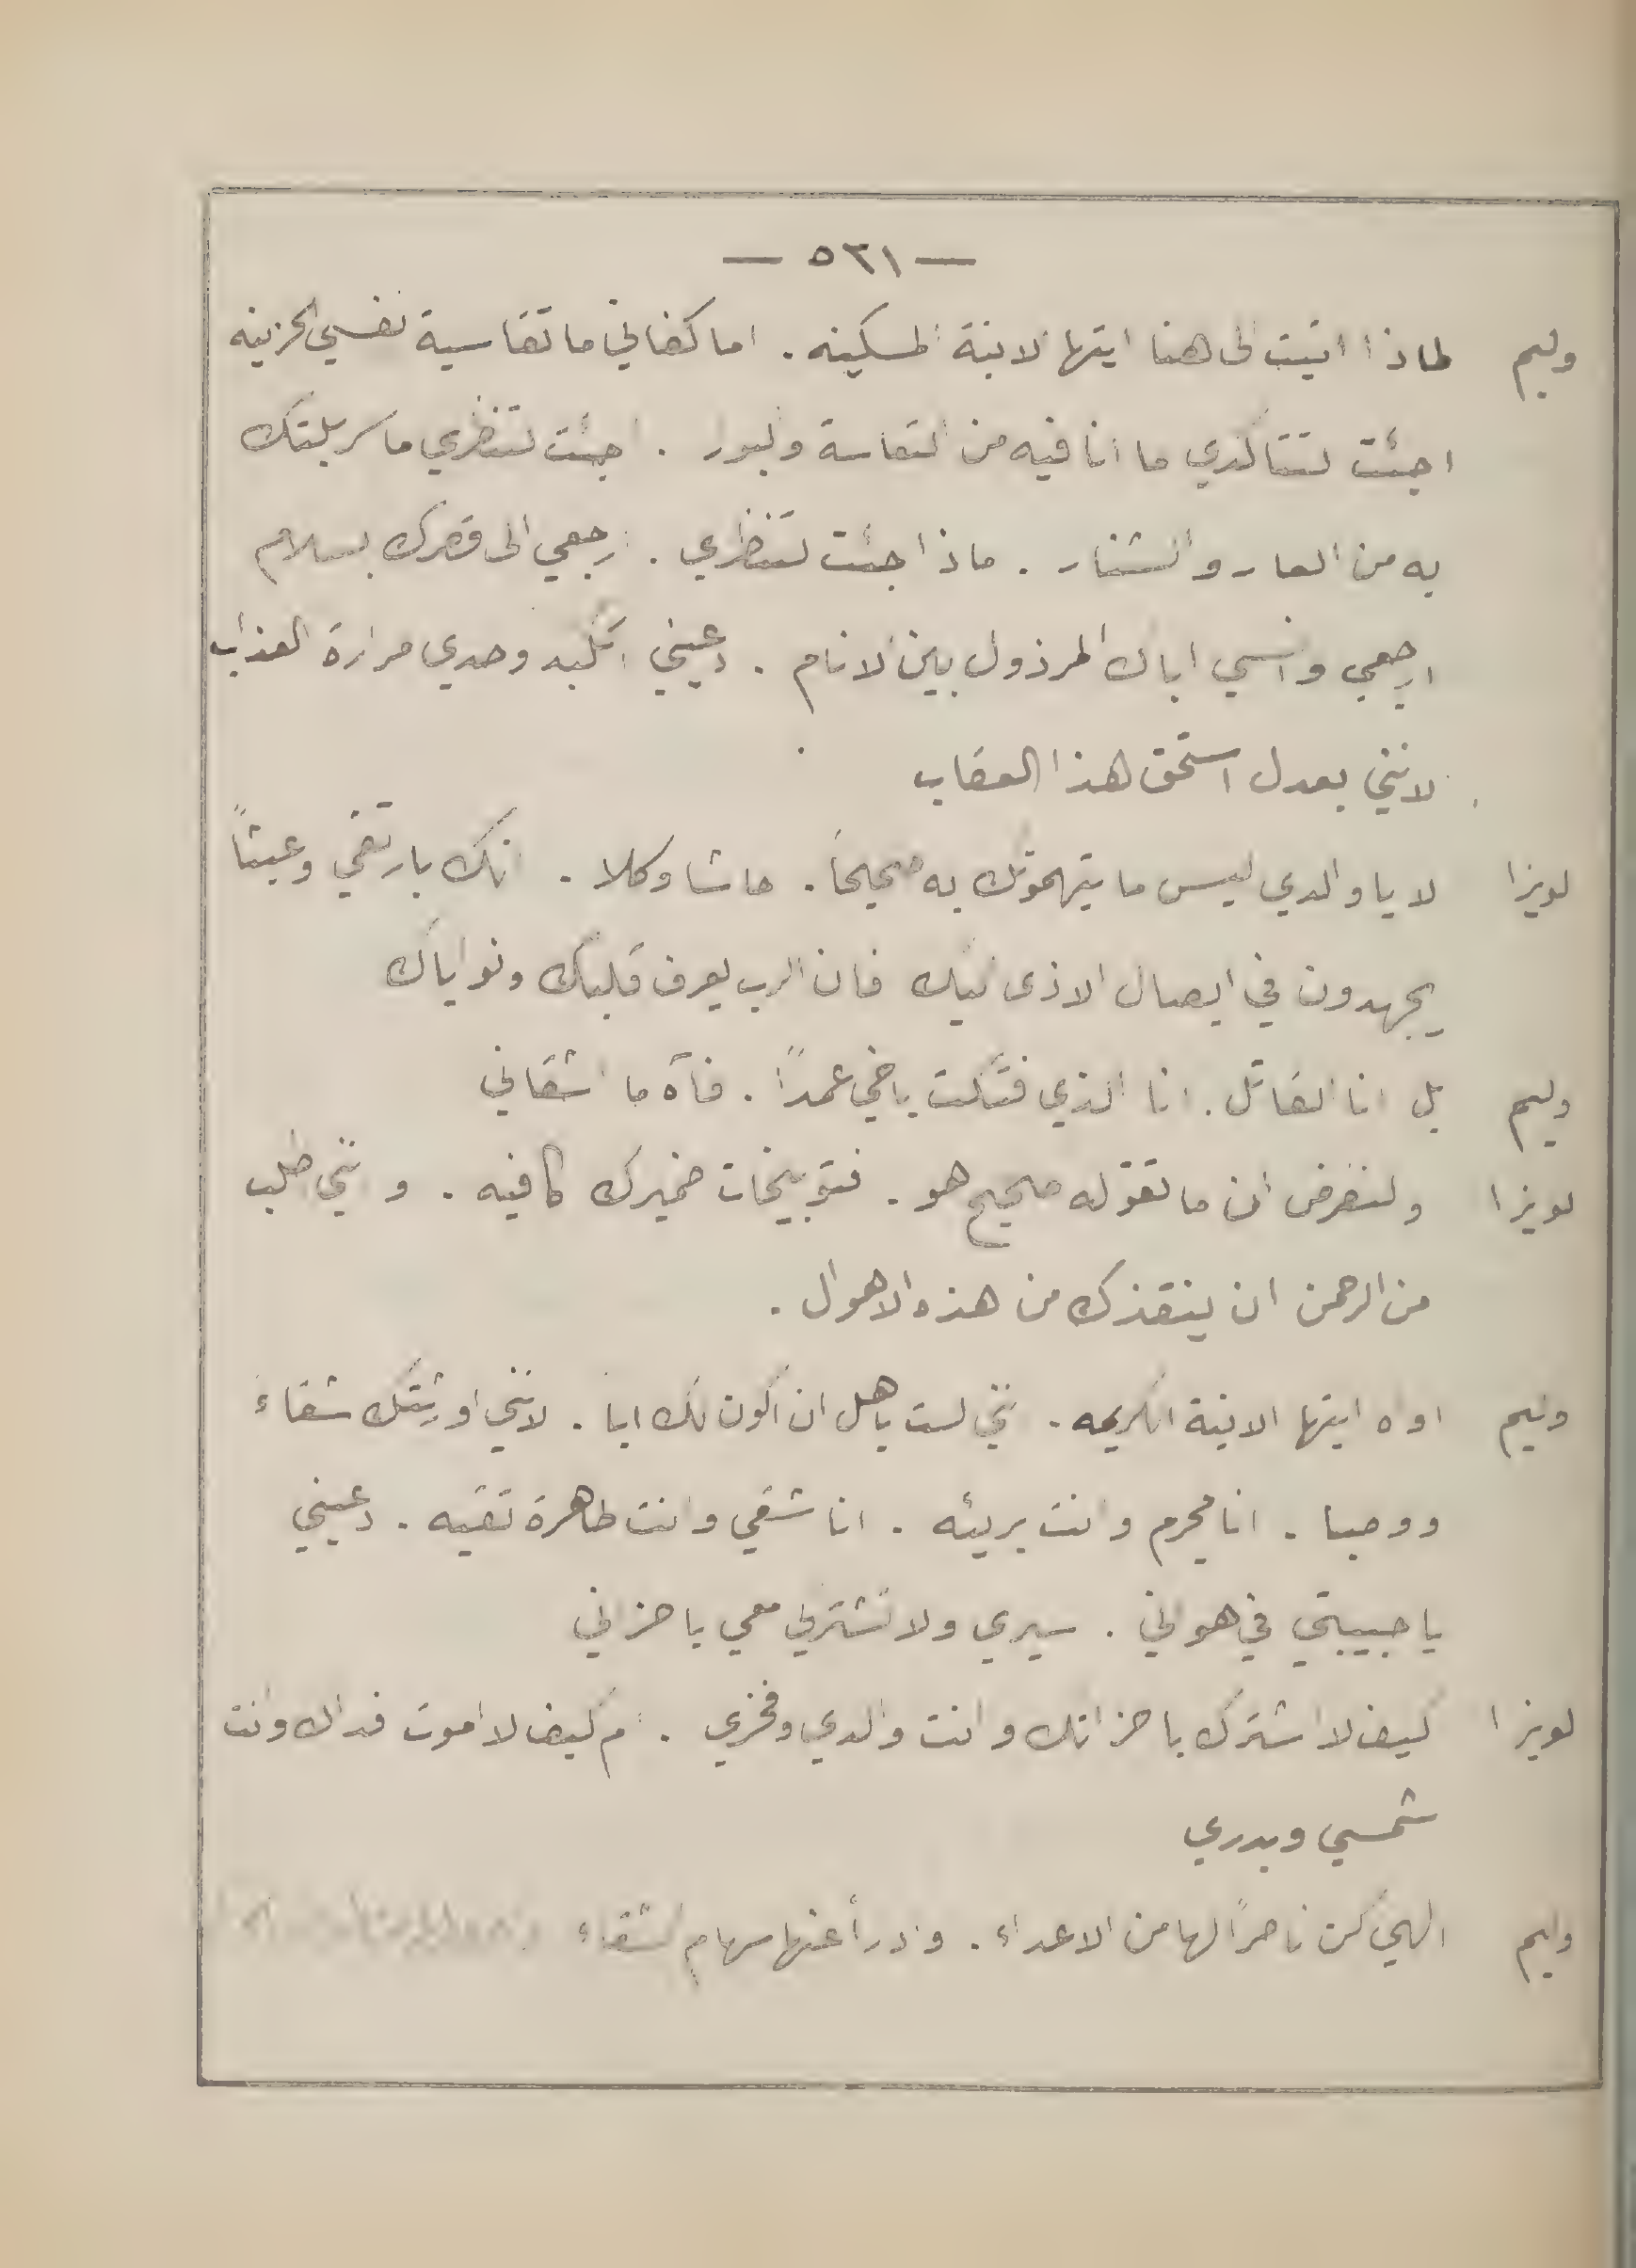 — ٥٢١ —
وليم لماذا اتيت الى هنا ايتها الابنة المسكينه . اما كفاني ما تقاسية نفسي الحزينه
اجئت لتتاكدي ما انا فيه من التعاسة والبور . اجئت لتنظري ما سربلتك
به من العار والشنار . ماذا جئت لتنظري . ارجعي الى قصرك بسلام
ارجعي وانسي اباك المرذول بين الانام . دعيني اتكبد وحدي مرارة العذاب
لانني بعدل استحق هذا العقاب
لويزا لا يا والدي ليس ما يتهمونك به صحيحاً . حاشا وكلا . انك بار تقي وعبثاً
يجهدون في ايصال الاذى اليك فان الرب يعرف قلبك ونواياك
وليم بل انا القاتل . انا الذي فتكت باخي عمداً . فآه ما اشقاني
لويزا ولنفرض ان ما تقوله صحيح هو . فتوبيخات ضميرك كافيه . وانني اطلب
من الرحمن ان ينقذك من هذه الاهوال .
وليم اواه ايتها الابنة الكريمه . انني لست باهل ان اكون لك ابا . لانني اورثتك شقاءً
ووصبا . انا مجرم وانت بريئه . انا شقي وانت طاهرة تقيه . دعيني
يا حبيبتي في هواني . سيري ولا تشتركي معي باحزاني
لويزا كيف لا اشترك باحزانك وانت والدي وفخري . ام كيف لا اموت فداك وانت
شمسي وبدري
وليم الهي كن ناصراً لها من الاعداء . وادرأ عنها سهام الشقاء